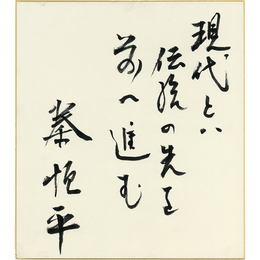 現代とハ
伝統の先を
前へ進む
秦恒平